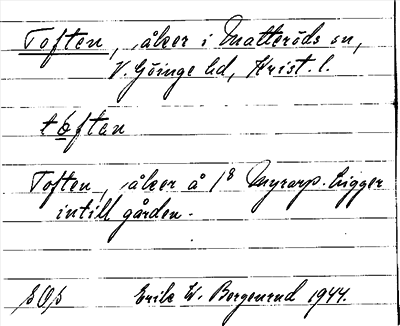 Toften, åker i Matteröds sn,
V. Göinge hd, Krist. l.
tòftan
Toften, åker å 1⁸ Myrarp. Ligger
intill gården.
Erik W. Bergenrud 1944.